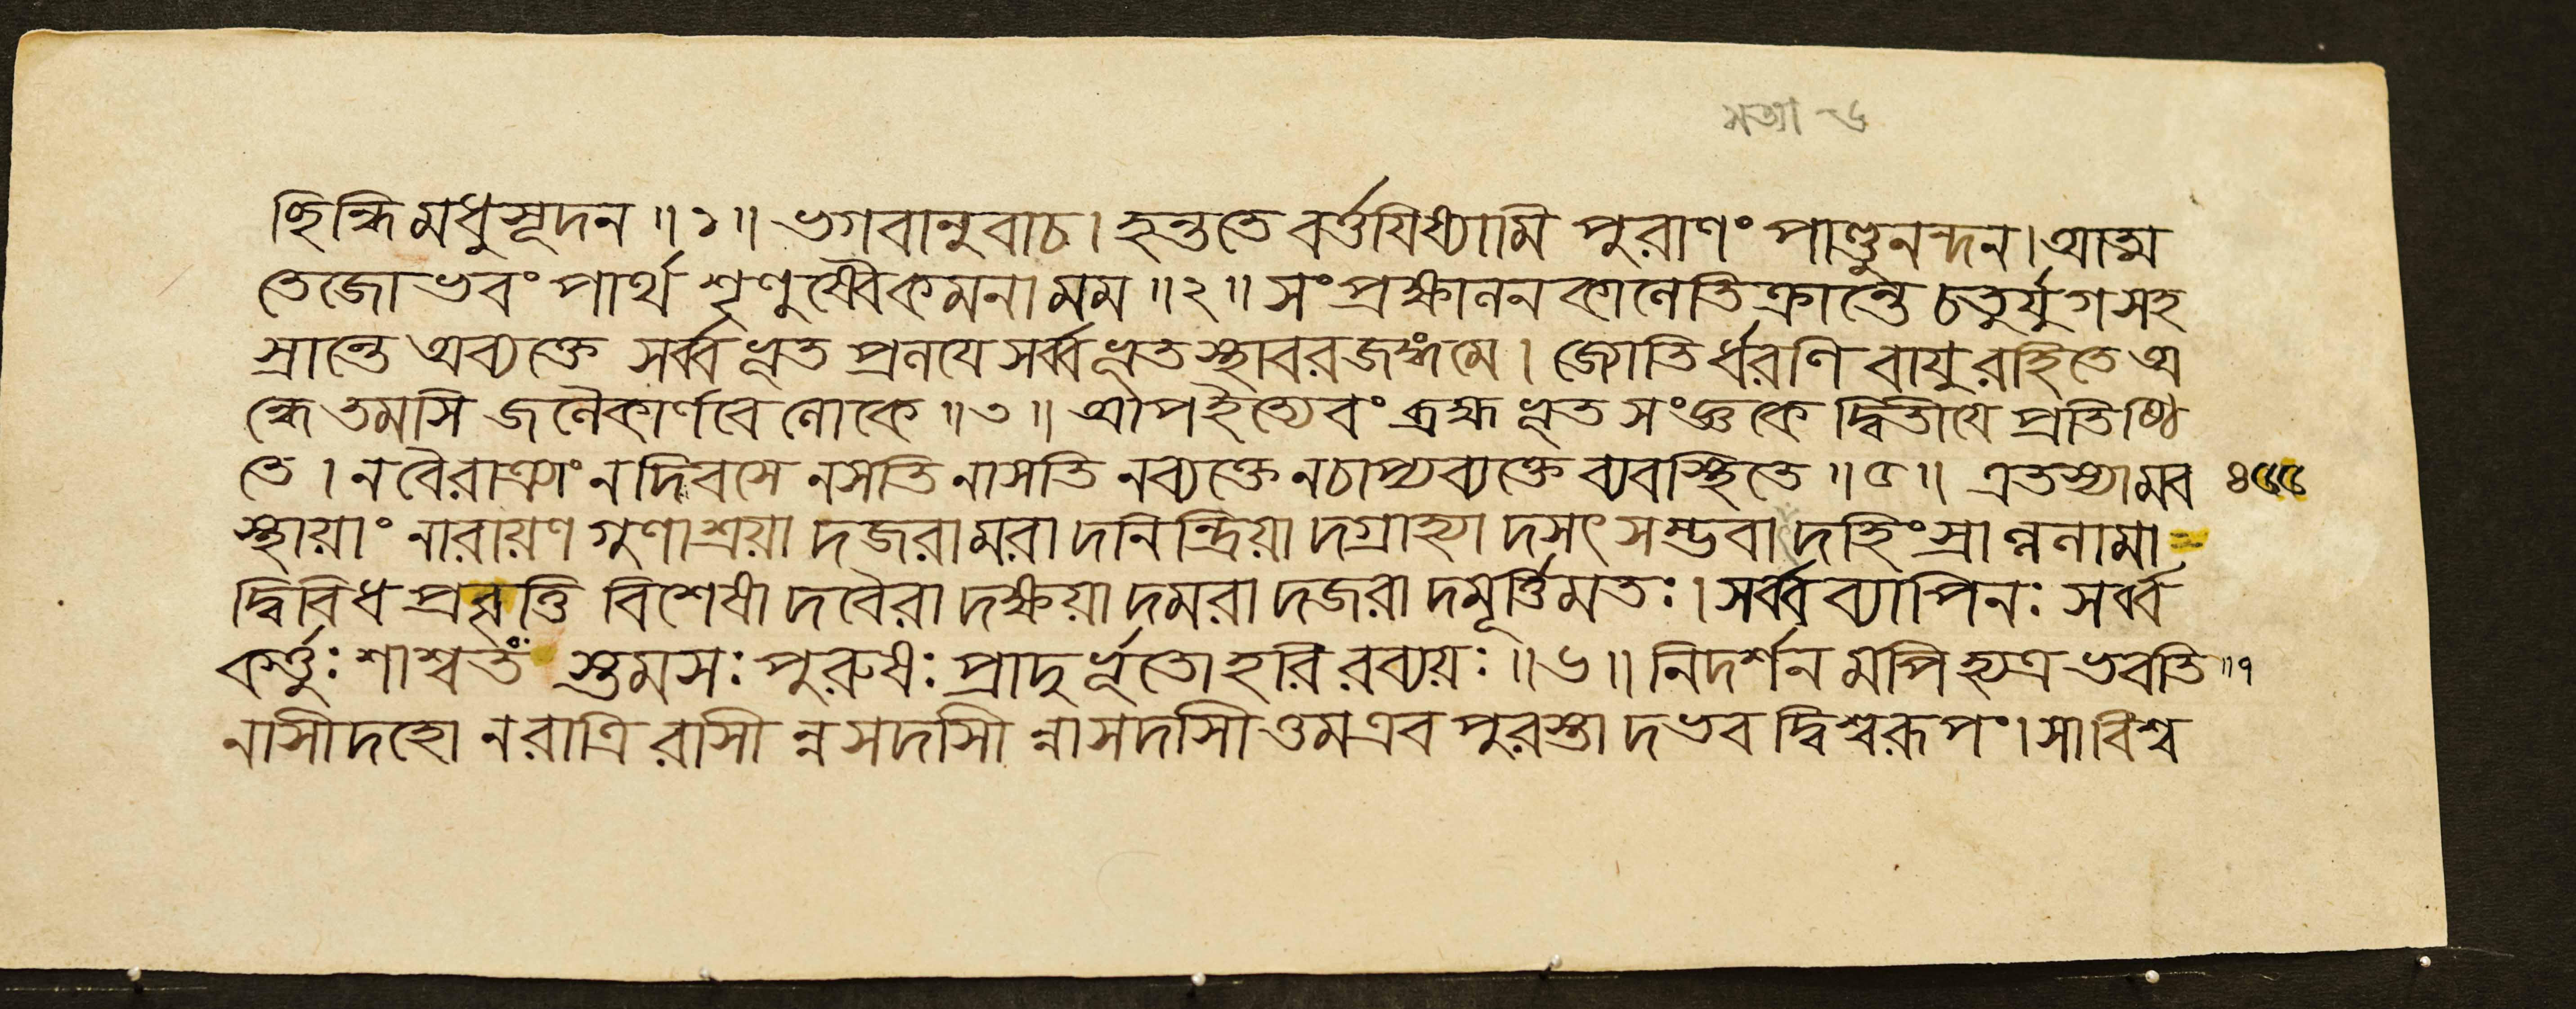 সভা - ৬
ছিন্ধি মধুসূদন ॥ ১ ॥ ভগবানুবাচ । হন্ততে বর্ত্তযিষ্যামি পুরাণং পাণ্ডুনন্দন । আত্ম
তেজোভবং পার্থ শৃণুষ্বৈকমনা মম ॥ ২ ॥ সংপ্রক্ষালনকালেতিক্রান্তে চতুর্যুগসহ
স্রান্তে অব্যক্তে সর্ব্বভূত প্রলযে সর্ব্বভূত স্থাবরজঙ্গমে । জ্যোতির্ধরণি বাযু রহিতে অ
ন্ধে তমসি জলৈকার্ণবে লোকে ॥ ৩ ॥ আপইত্যেবং ব্রহ্মভূত সংজ্ঞকে দ্বিতীযে প্রতিষ্ঠি
তে । ন বৈরাত্র্যাং ন দিবসে নসতি নাসতি নব্যক্তে নচাপ্যব্যক্তে ব্যবস্থিতে ॥ ৫ ॥ এতস্যামব ৪৫৫
স্থায়াং নারায়ণ গুণাশ্রয়া দজরামরা দনিন্দ্রিয়া দগ্রাহ্যা দসৎ সম্ভবা দহিংস্রান্নলামা =
দ্বিবিধ প্রবৃত্তি বিশেষা দবৈরা দক্ষয়া দমরা দজরা দমূর্ত্তিমতঃ । সর্ব্ব ব্যাপিনঃ সর্ব্ব
কর্ত্তুঃ শাশ্বতং স্তমসঃ পুরুষঃ প্রাদুর্ভূতোহরি রব্যয়ঃ ॥ ৬ ॥ নিদর্শন মপি হ্যত্র ভবতি ॥ ৭
নাসীদহো নরাত্রি রাসী ন্নসদাসী ন্নাসদাসী ওমএব পুরস্তা দভব দ্বিশ্বরূপং । সা বিশ্ব